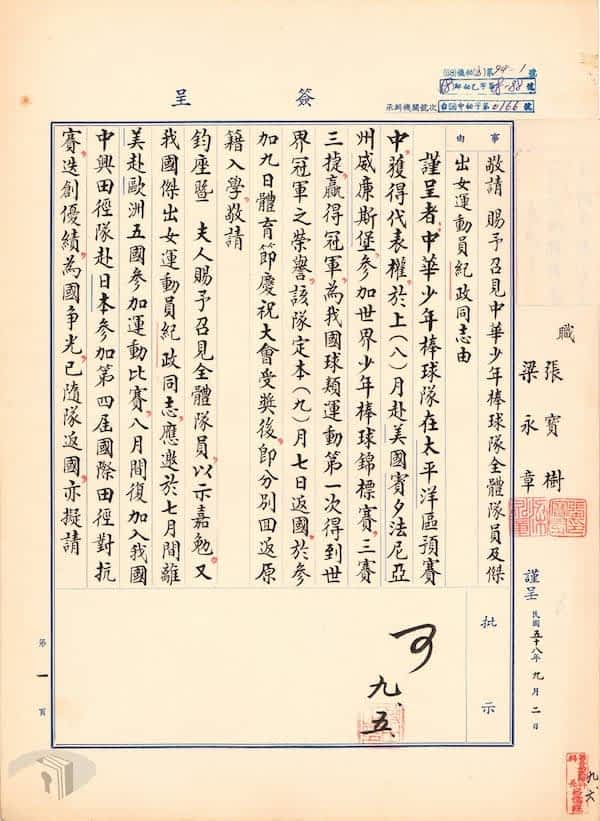 簽呈
(58)機祕(乙)第94-1號
承辦機關號次
職 張寶樹
梁永章
謹呈 民國五十八年九月二日
事由
敬請 賜予召見中華少年棒球隊全體隊員及傑
出女運動員紀政同志由
謹呈者,中華少年棒球隊在太平洋區預賽
中,獲得代表權,於上(八)月赴美國賓夕法尼亞
州威廉斯堡,參加世界少年棒球錦標賽,三賽
三捷,贏得冠軍,為我國球類運動第一次得到世
界冠軍之榮譽,該隊定本(九)月七日返國,於參
加九日體育節慶祝大會受獎後,即分別回返原
籍入學,敬請
鈞座暨 夫人賜予召見全體隊員,以示嘉勉,又
我國傑出女運動員紀政同志,應邀於七月間離
美赴歐洲五國參加運動比賽,八月間復加入我國
中興田徑隊赴日本參加第四屆國際田徑對抗
賽,迭創優績,為國爭光,已隨隊返國,亦擬請
批示
可
九、五、
第一頁
九、六